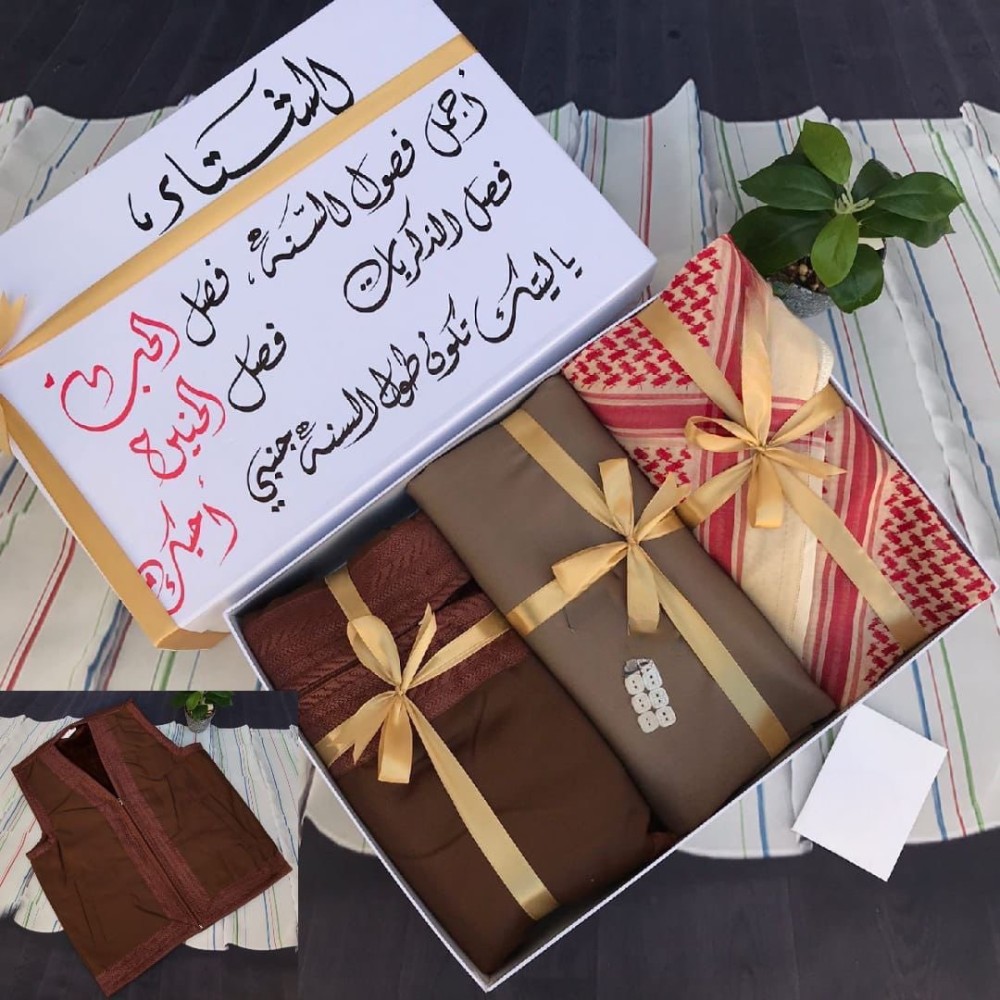 الشتاء
أجمل فصول السنة، فصل الحب
فصل الذكريات فصل الحنين
ياليتك تكون طول السنة جنبي أحبك